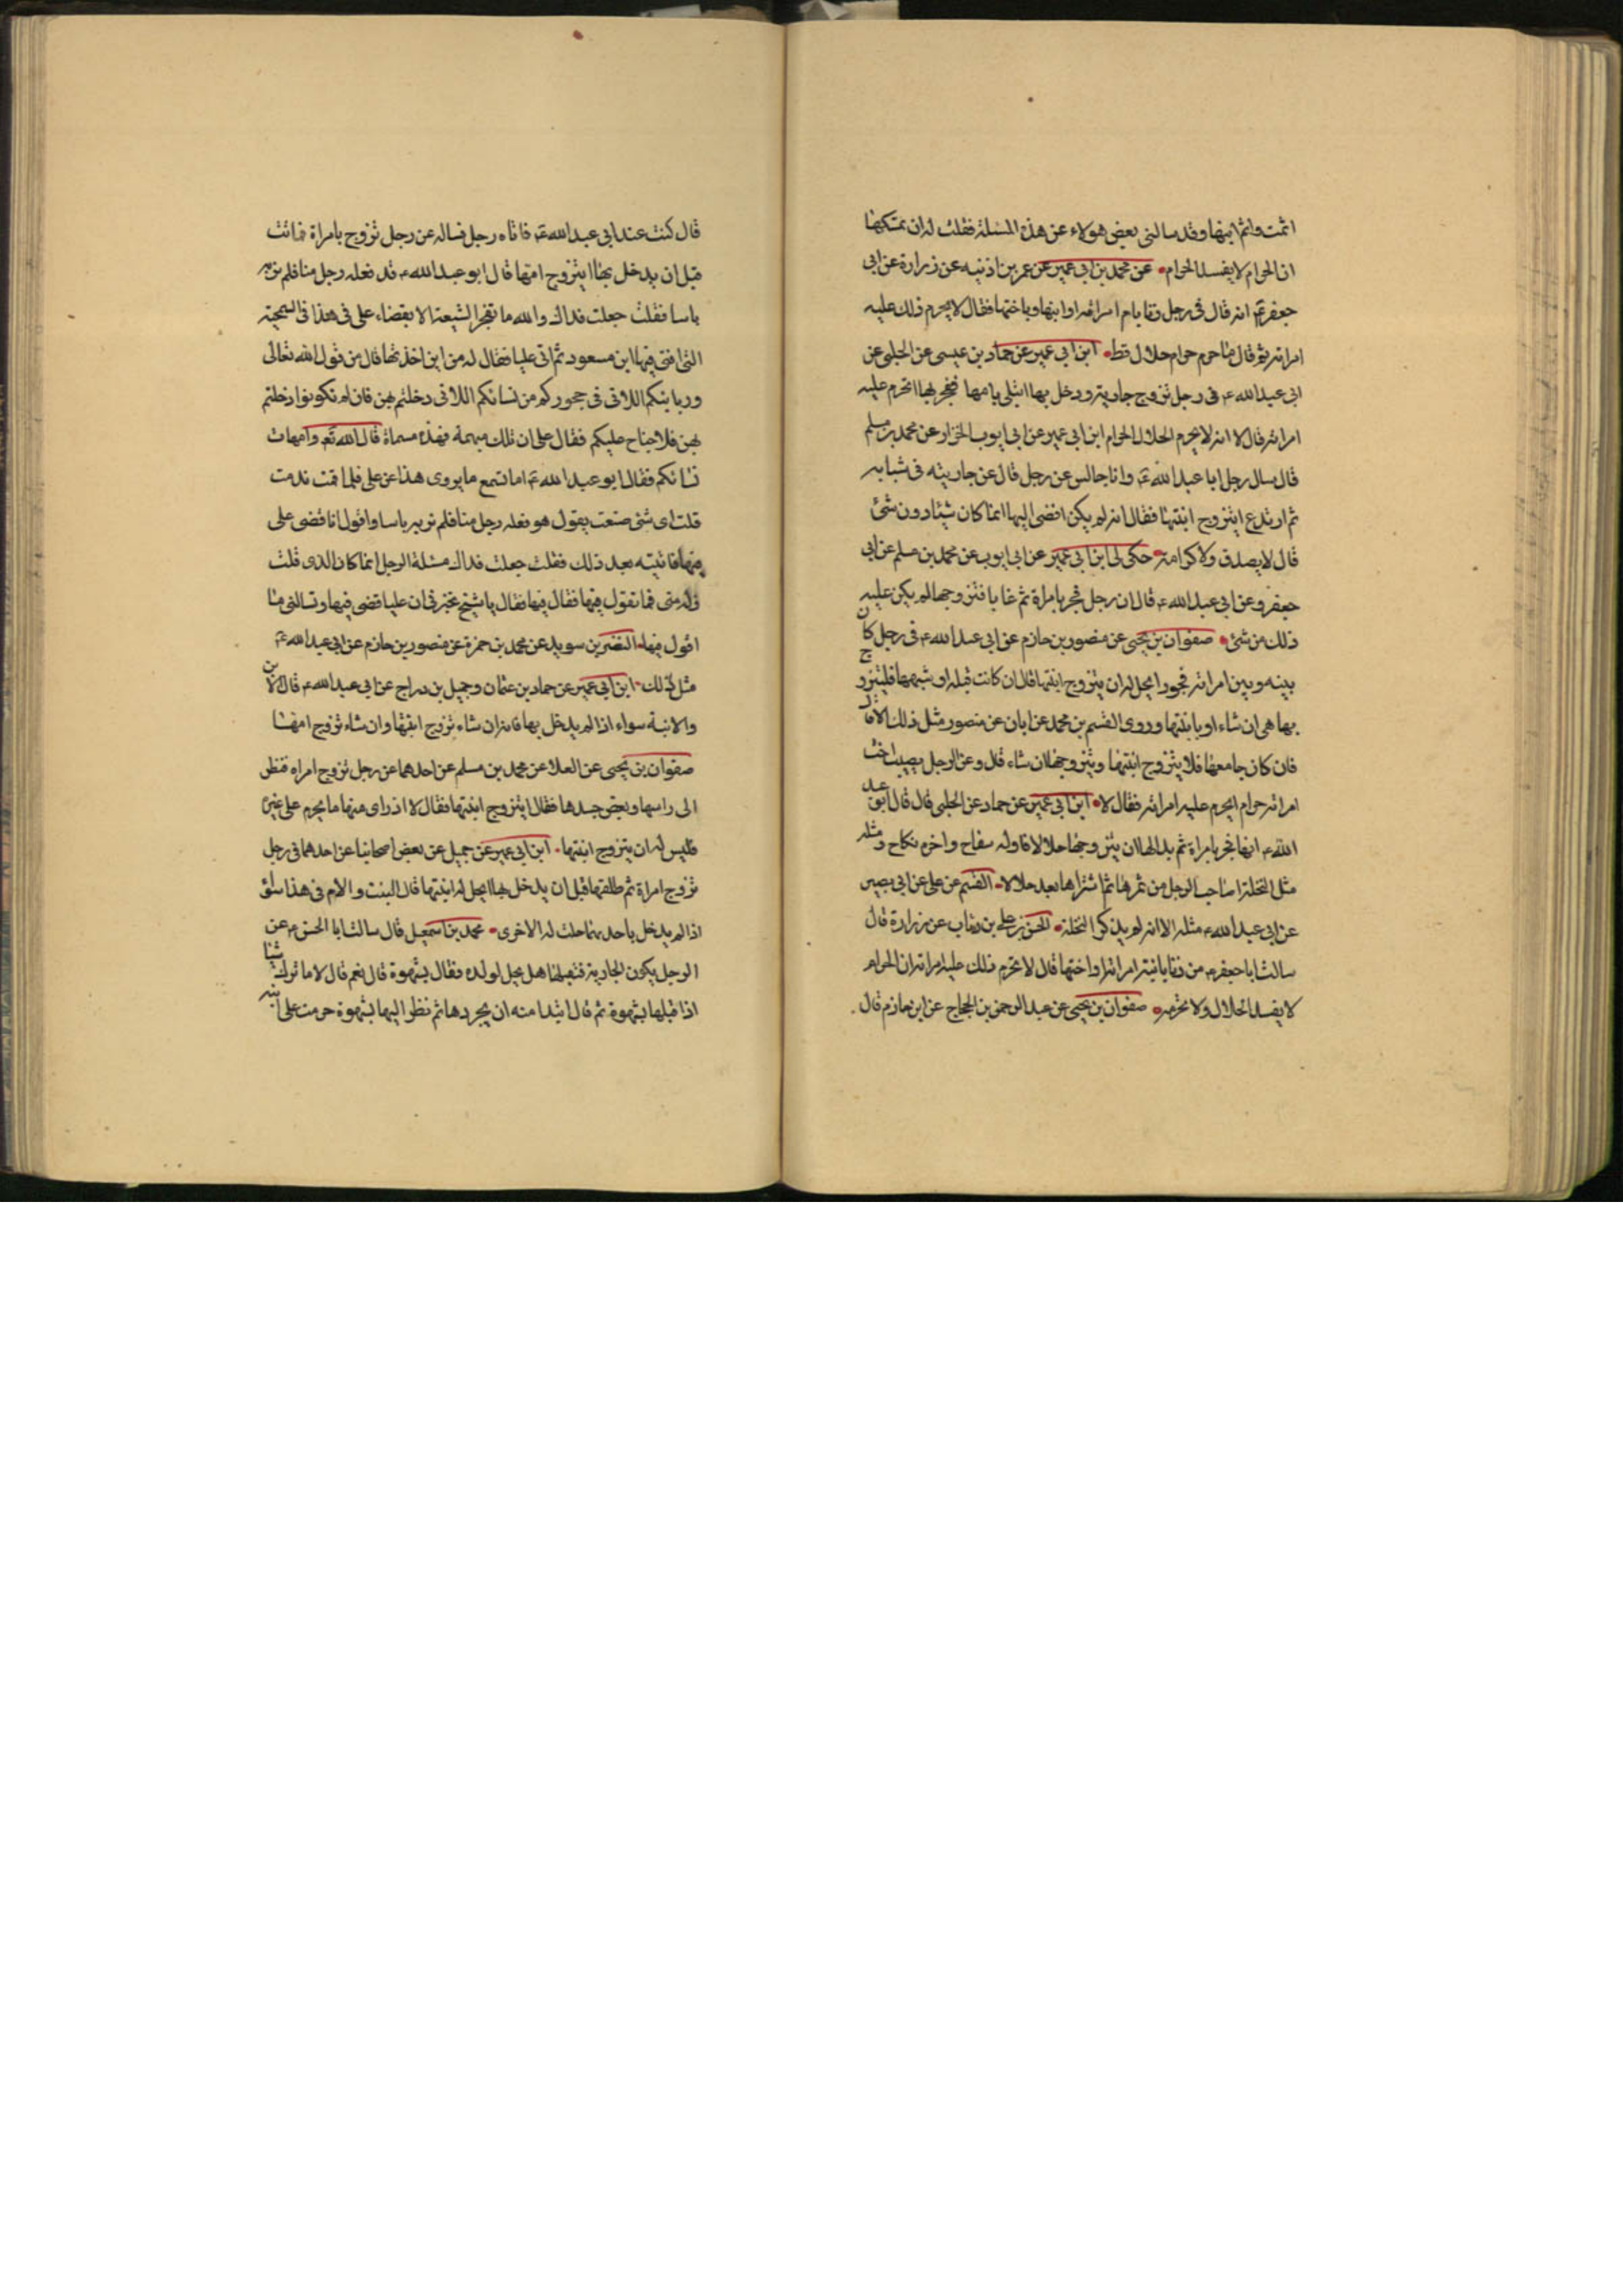 اثمت واثم ابنها وقد سالنى بعض هولاء عن هذه المسئلة فقلت له ان يمسكها
ان الحرام لا يفسد الحرام عن محمد بن ابى عمير عن عمر بن اذنيه عن زرارة عن ابى
جعفر ع انه قال فى رجل زنا بام امراته او ابنتها وباختها فقال لا يحرم ذلك عليه
امراته ثم قال ما حرم حرام حلال قط ابن ابى عمير عن حماد بن عيسى عن الحلبى عن
ابى عبد الله ع فى رجل تزوج جارية ودخل بها ابتلى بامها ففجر بها اتحرم عليه
امراته قال لا انه لا يحرم الحلال الحرام ابن ابى عمير عن ابى ايوب الخزاز عن محمد بن مسلم
قال سال رجل ابا عبد الله ع وانا جالس عن رجل قال عن جاريته فى شبابه
ثم ارتدع ايتزوج ابنتها فقال انه لم يكن افضى اليها انما كان شيئا دون شئ
قال لا يصدق ولا كرامة حكى لى ابن ابى عمير عن ابى ايوب عن محمد بن مسلم عن ابى
جعفر وعن ابى عبد الله ع قال ان رجل فجر بامراة ثم تابا فتزوجها لم يكن عليه
ذلك من شئ صفوان بن يحيى عن منصور بن حازم عن ابى عبد الله ع فى رجل كان
بينه وبين امراته فجور ايحل له ان يتزوج ابنتها قال ان كانت قبلة او شبهها فليتزوج
بها هى ان شاء او بابنتها وروى القسم بن محمد عن ابان عن منصور مثل ذلك الا قال
فان كان جامعها فلا يتزوج ابنتها ويتزوجها ان شاء قال وعن الرجل يصيب اخت
امراته حرام ايحرم عليه امراته فقال لا ابن ابى عمير عن حماد عن الحلبى قال قال ابو عبد
الله ع ايما فجر بامراة ثم بدا لها ان يتزوجها حلالا فاوله سفاح واخره نكاح ومثله
مثل النخلة اصاحب الرجل من ثمرها ثم اشتراها بعد حلالا القسم عن على عن ابى بصير
عن ابى عبد الله ع مثله الا انه لم يذكر النخلة الحسن بن على بن رئاب عن زرارة قال
سالت ابا جعفر ع من زنا بابنة امراته او اختها قال لا يحرم ذلك عليه امراته ان الحرام
لا يفسد الحلال ولا يحرمه صفوان بن يحيى عن عبد الرحمن بن الحجاج عن ابن حازم قال
قال كنت عند ابى عبد الله ع فاتاه رجل فساله عن رجل تزوج بامراة فماتت
قبل ان يدخل بها ايتزوج امها قال ابو عبد الله ع قد فعله رجل منا فلم نر به
باسا فقلت جعلت فداك والله ما تفخر الشيعة الا بقضاء على فى هذا فى السمجية
التى افتى فيها ابن مسعود ثم اتى عليا فقال له من اين اخذتها قال من قول الله تعالى
وربائبكم اللاتى فى حجوركم من نسائكم اللاتى دخلتم بهن فان لم تكونوا دخلتم
بهن فلا جناح عليكم فقال على ان تلك مبهمة وهذه مسماة قال الله تع وامهات
نسائكم فقال ابو عبد الله ع اما تسمع ما يروى هذا عن على فلما قمت ندمت
قلت اى شئ صنعت يقول هو فعله رجل منا فلم نر به باسا واقول انا قضى على
فيها فاتيته بعد ذلك فقلت جعلت فداك مسئلة الرجل انما كان الذى قلت
زلة منى فما تقول فيها فقال فيها فقال يا شيخ تخبرنى ان عليا قضى فيها وتسالنى ما
اقول فيها النضر بن سويد عن محمد بن حمزة عن منصور بن حازم عن ابى عبد الله ع
مثل ذلك ابن ابى عمير عن حماد بن عثمان وجميل بن دراج عن ابى عبد الله ع قال الام
والابنة سواء اذا لم يدخل بها فانه ان شاء تزوج ابنتها وان شاء تزوج امها
صفوان بن يحيى عن العلا عن محمد بن مسلم عن احدهما عن رجل تزوج امراه فنظر
الى راسها وبعض جسدها فقال ايتزوج ابنتها فقال لا اذا راى منها ما يحرم على غيره
فليس له ان يتزوج ابنتها ابن ابى عمير عن جميل عن بعض اصحابنا عن احدهما فى رجل
تزوج امراة ثم طلقها قبل ان يدخل بها ايحل له ابنتها قال البنت والام فى هذا سواء
اذا لم يدخل باحديهما حلت له الاخرى محمد بن اسمعيل قال سالت ابا الحسن ع عن
الرجل يكون الجارية فيقبلها هل يحل لولده فقال بشهوة قال نعم قال لا ما ترك شيئا
اذا قبلها بشهوة ثم قال ابتدا منه ان يجردها ثم نظر اليها بشهوة حرمت على ابنه